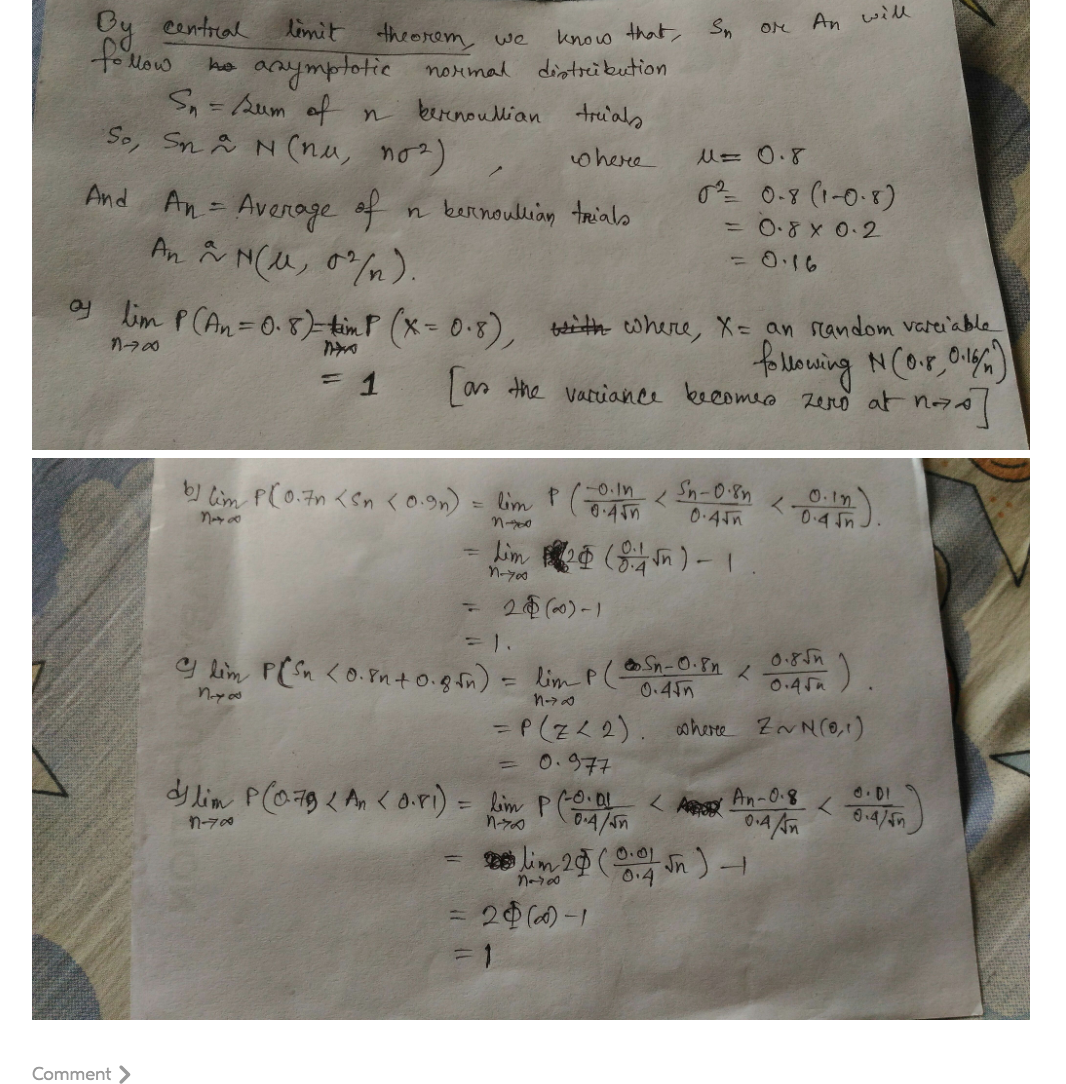 By central limit theorem, we know that, Sn or An will
follow asymptotic normal distribution
Sn = Sum of n bernoullian trials
So, Sn ~ᵃ N(nμ, nσ²), where μ = 0.8
σ² = 0.8(1-0.8)
= 0.8 x 0.2
= 0.16
And An = Average of n bernoullian trials
An ~ᵃ N(μ, σ²/n).
a) lim n→∞ P(An = 0.8) = P(X = 0.8), where, X = an random variable
following N(0.8, 0.16/n)
= 1 [as the variance becomes zero at n→∞]
b) lim n→∞ P(0.7n < Sn < 0.9n) = lim n→∞ P(-0.1n/0.4√n < Sn-0.8n/0.4√n < 0.1n/0.4√n).
= lim n→∞ 2Φ(0.1/0.4 √n) - 1.
= 2Φ(∞) - 1
= 1.
c) lim n→∞ P(Sn < 0.8n + 0.8√n) = lim n→∞ P(Sn-0.8n/0.4√n < 0.8√n/0.4√n).
= P(Z < 2). where Z ~ N(0,1)
= 0.977
d) lim n→∞ P(0.79 < An < 0.81) = lim n→∞ P(-0.01/0.4/√n < An-0.8/0.4/√n < 0.01/0.4/√n)
= lim n→∞ 2Φ(0.01/0.4 √n) - 1
= 2Φ(∞) - 1
= 1
Comment >